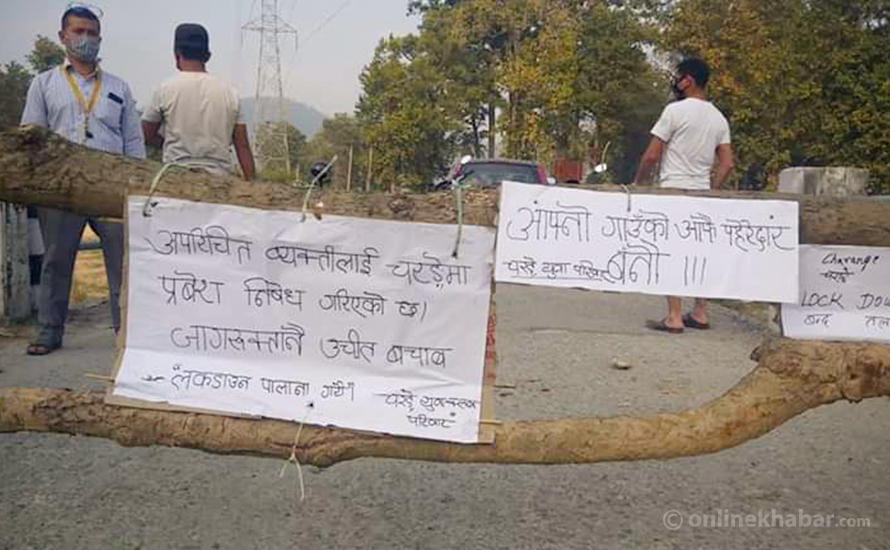 अपरिचित व्यक्तीलाई चरङ्गेमा
प्रवेश निषेध गरिएको छ।
जागरूकतानै उचीत बचाव
लकडाउन पालाना गरौं।
चरङ्गे युवा
परिवार
आफ्नो गाउँको आफै पहरेदार
बनौ !!!
चरङ्गे युवा परिवार
Charange
चरङ्गे
LOCK DOW
बन्द
© onlinekhabar.com